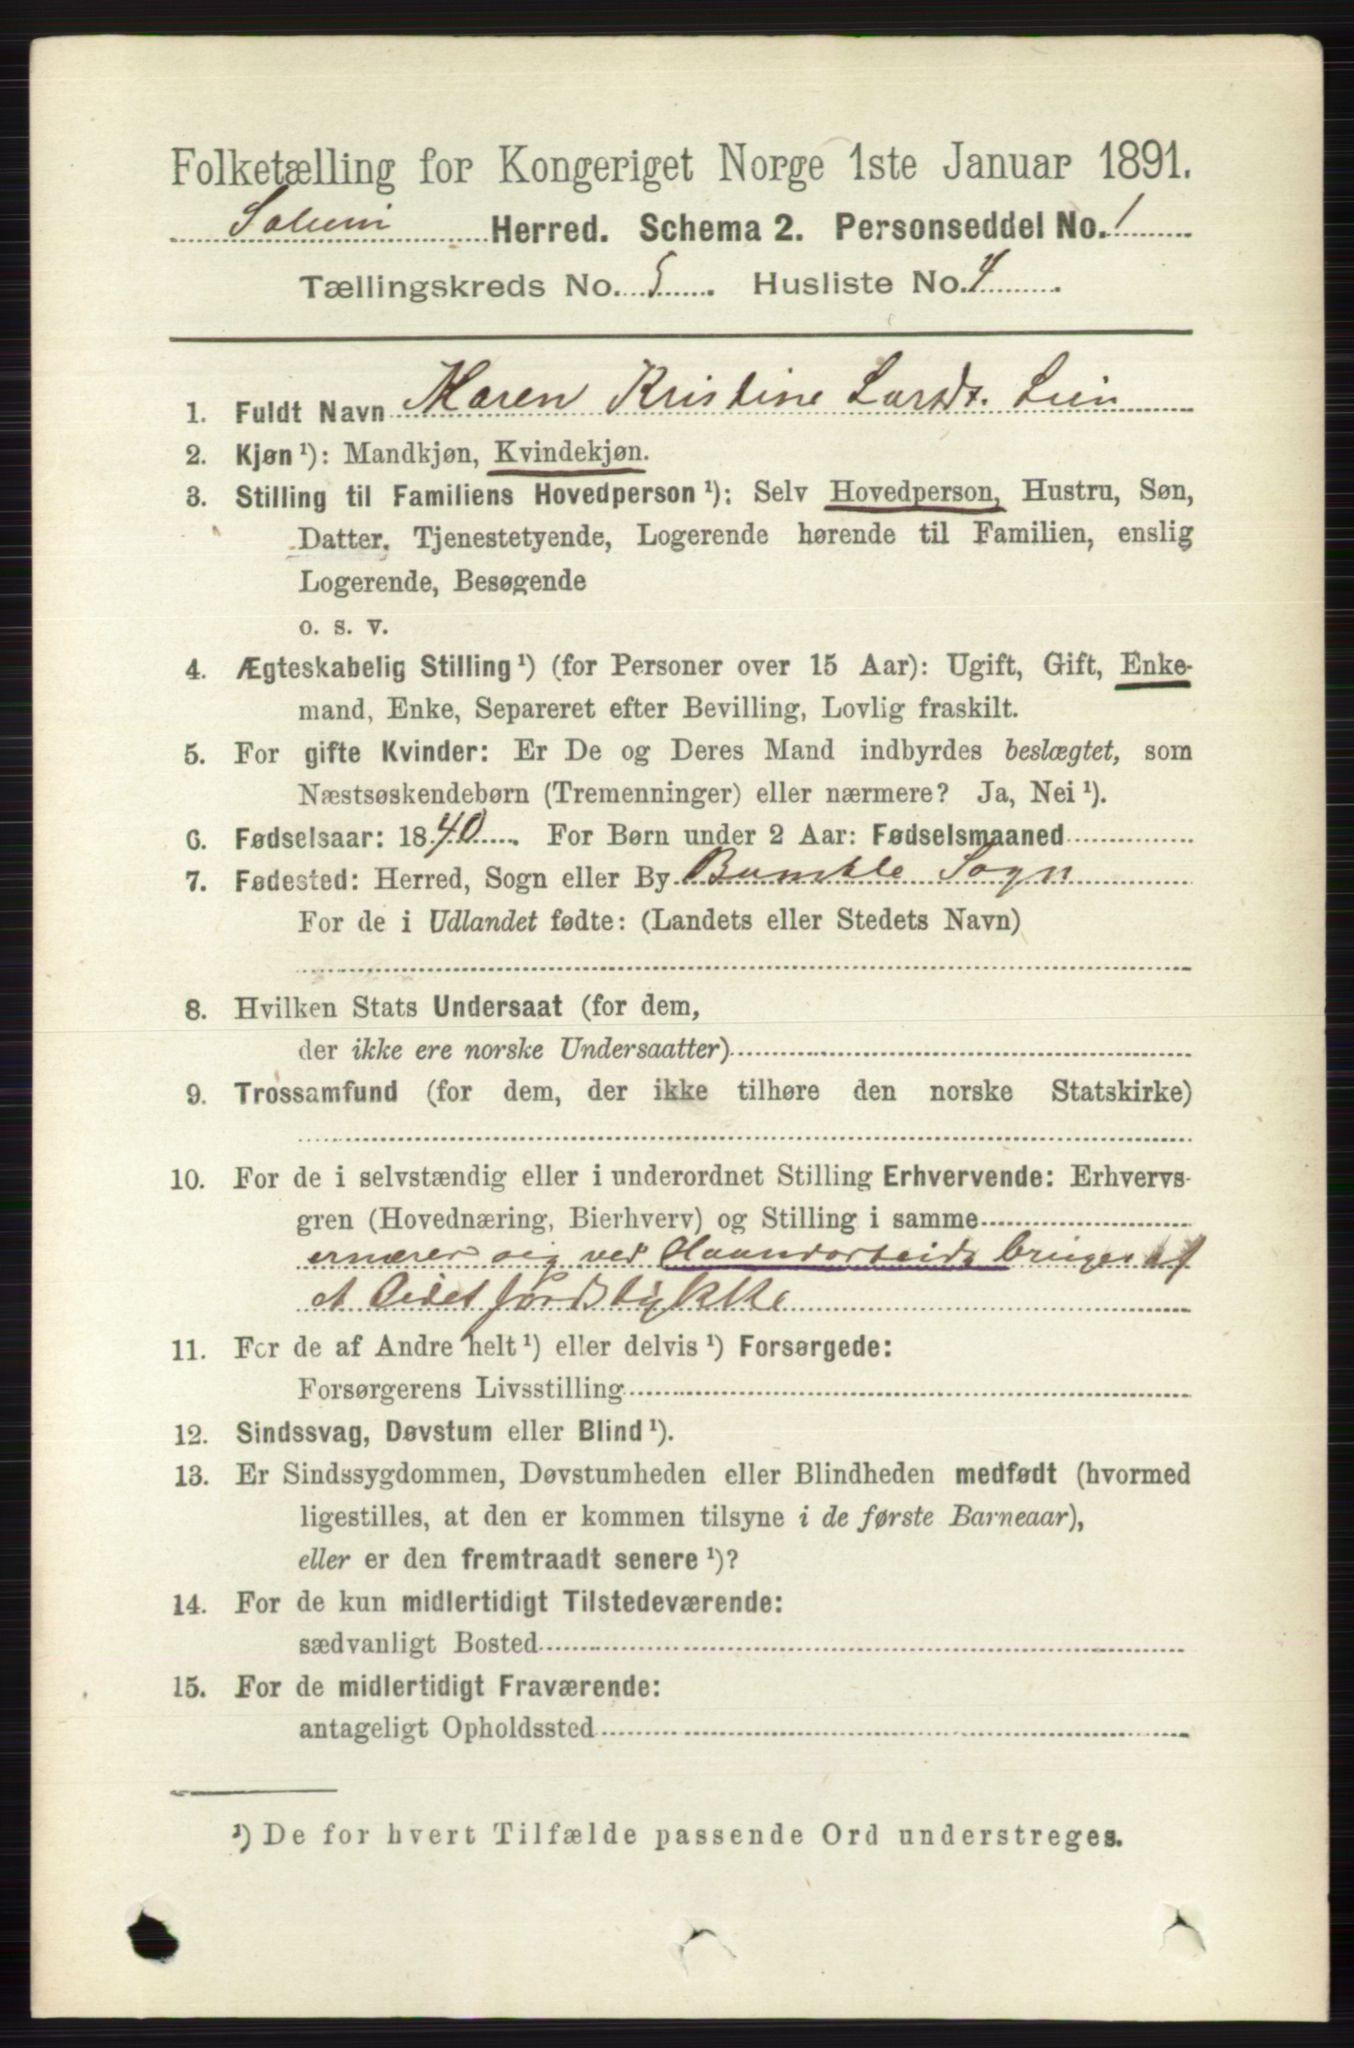 Folketælling for Kongeriget Norge 1ste Januar 1891.
Solum Herred. Schema 2. Personseddel No. 1
Tællingskreds No. 5 Husliste No. 4
1. Fuldt Navn Maren Kristine Larsdt. Lien
2. Kjøn ¹): Mandkjøn, Kvindekjøn.
3. Stilling til Familiens Hovedperson ¹): Selv Hovedperson, Hustru, Søn,
Datter, Tjenestetyende, Logerende hørende til Familien, enslig
Logerende, Besøgende
o. s. v.
4. Ægteskabelig Stilling ¹) (for Personer over 15 Aar): Ugift, Gift, Enke-
mand, Enke, Separeret efter Bevilling, Lovlig fraskilt.
5. For gifte Kvinder: Er De og Deres Mand indbyrdes beslægtet, som
Næstsøskendebørn (Tremenninger) eller nærmere? Ja, Nei ¹).
6. Fødselsaar: 1840. For Børn under 2 Aar: Fødselsmaaned
7. Fødested: Herred, Sogn eller By Bamble Sogn
For de i Udlandet fødte: (Landets eller Stedets Navn)
8. Hvilken Stats Undersaat (for dem,
der ikke ere norske Undersaatter)
9. Trossamfund (for dem, der ikke tilhøre den norske Statskirke)
10. For de i selvstændig eller i underordnet Stilling Erhvervende: Erhvervs-
gren (Hovednæring, Bierhverv) og Stilling i samme
ernærer sig ved Haandarbeide bruger
et lidet Jordstykke
11. For de af Andre helt ¹) eller delvis ¹) Forsørgede:
Forsørgerens Livsstilling
12. Sindssvag, Døvstum eller Blind ¹).
13. Er Sindssygdommen, Døvstumheden eller Blindheden medfødt (hvormed
ligestilles, at den er kommen tilsyne i de første Barneaar),
eller er den fremtraadt senere ¹)?
14. For de kun midlertidigt Tilstedeværende:
sædvanligt Bosted
15. For de midlertidigt Fraværende:
antageligt Opholdssted
¹) De for hvert Tilfælde passende Ord understreges.